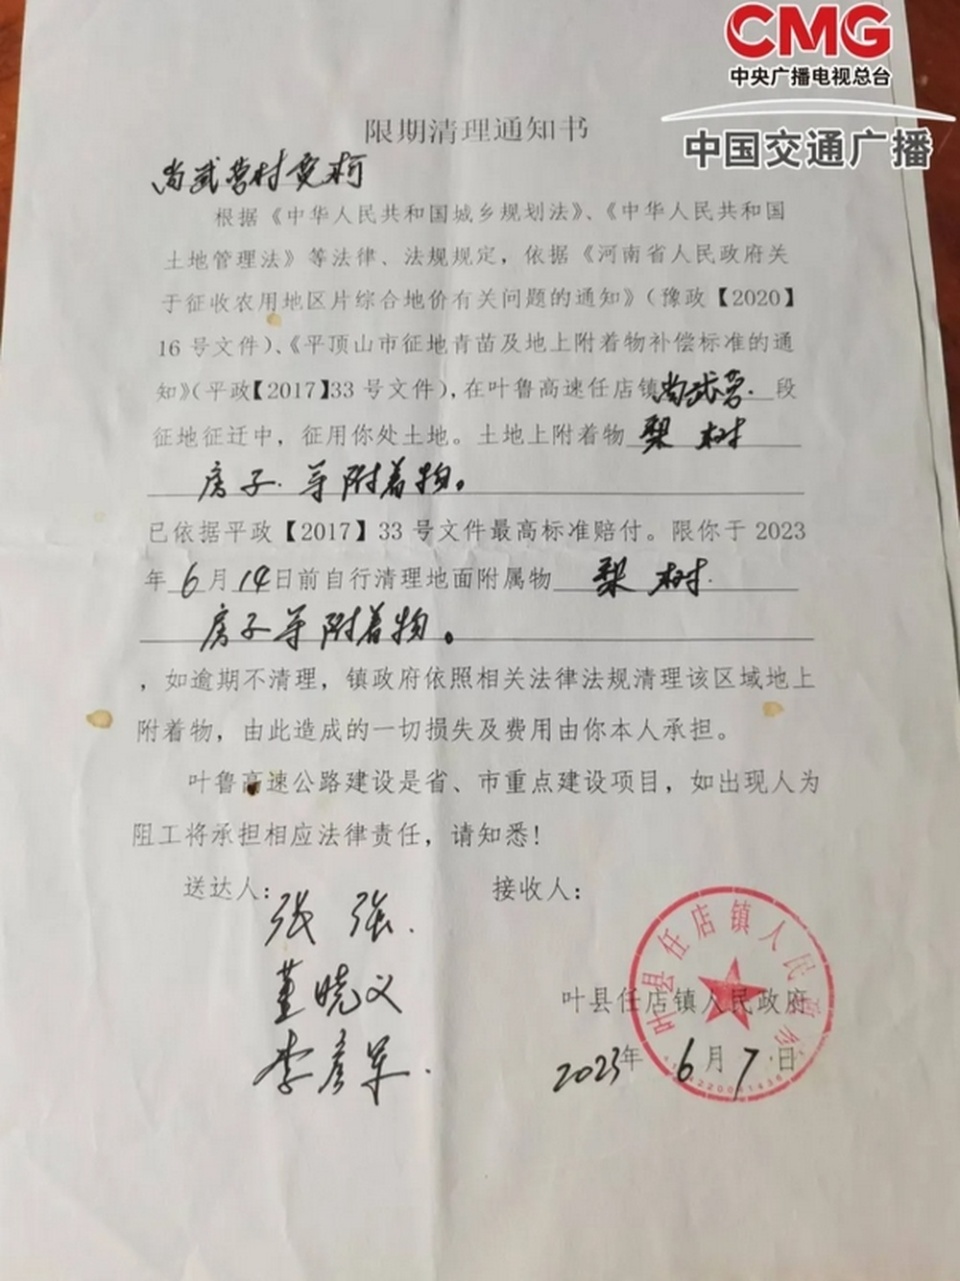 CMG
中央广播电视总台
中国交通广播
限期清理通知书
尚武营村 柯
根据《中华人民共和国城乡规划法》、《中华人民共和国
土地管理法》等法律、法规规定，依据《河南省人民政府关
于征收农用地区片综合地价有关问题的通知》（豫政【2020】
16号文件）、《平顶山市征地青苗及地上附着物补偿标准的通
知》（平政【2017】33号文件），在叶鲁高速任店镇尚武营.段
征地征迁中，征用你处土地。土地上附着物梨树
房子.等附着物。
已依据平政【2017】33号文件最高标准赔付。限你于2023
年6月14日前自行清理地面附属物梨树.
房子等附着物。
，如逾期不清理，镇政府依照相关法律法规清理该区域地上
附着物，由此造成的一切损失及费用由你本人承担。
叶鲁高速公路建设是省、市重点建设项目，如出现人为
阻工将承担相应法律责任，请知悉!
送达人：张强. 接收人：
董晓义
李彦军.
叶县任店镇人民政府
叶县任店镇人民政府
2023年6月7日